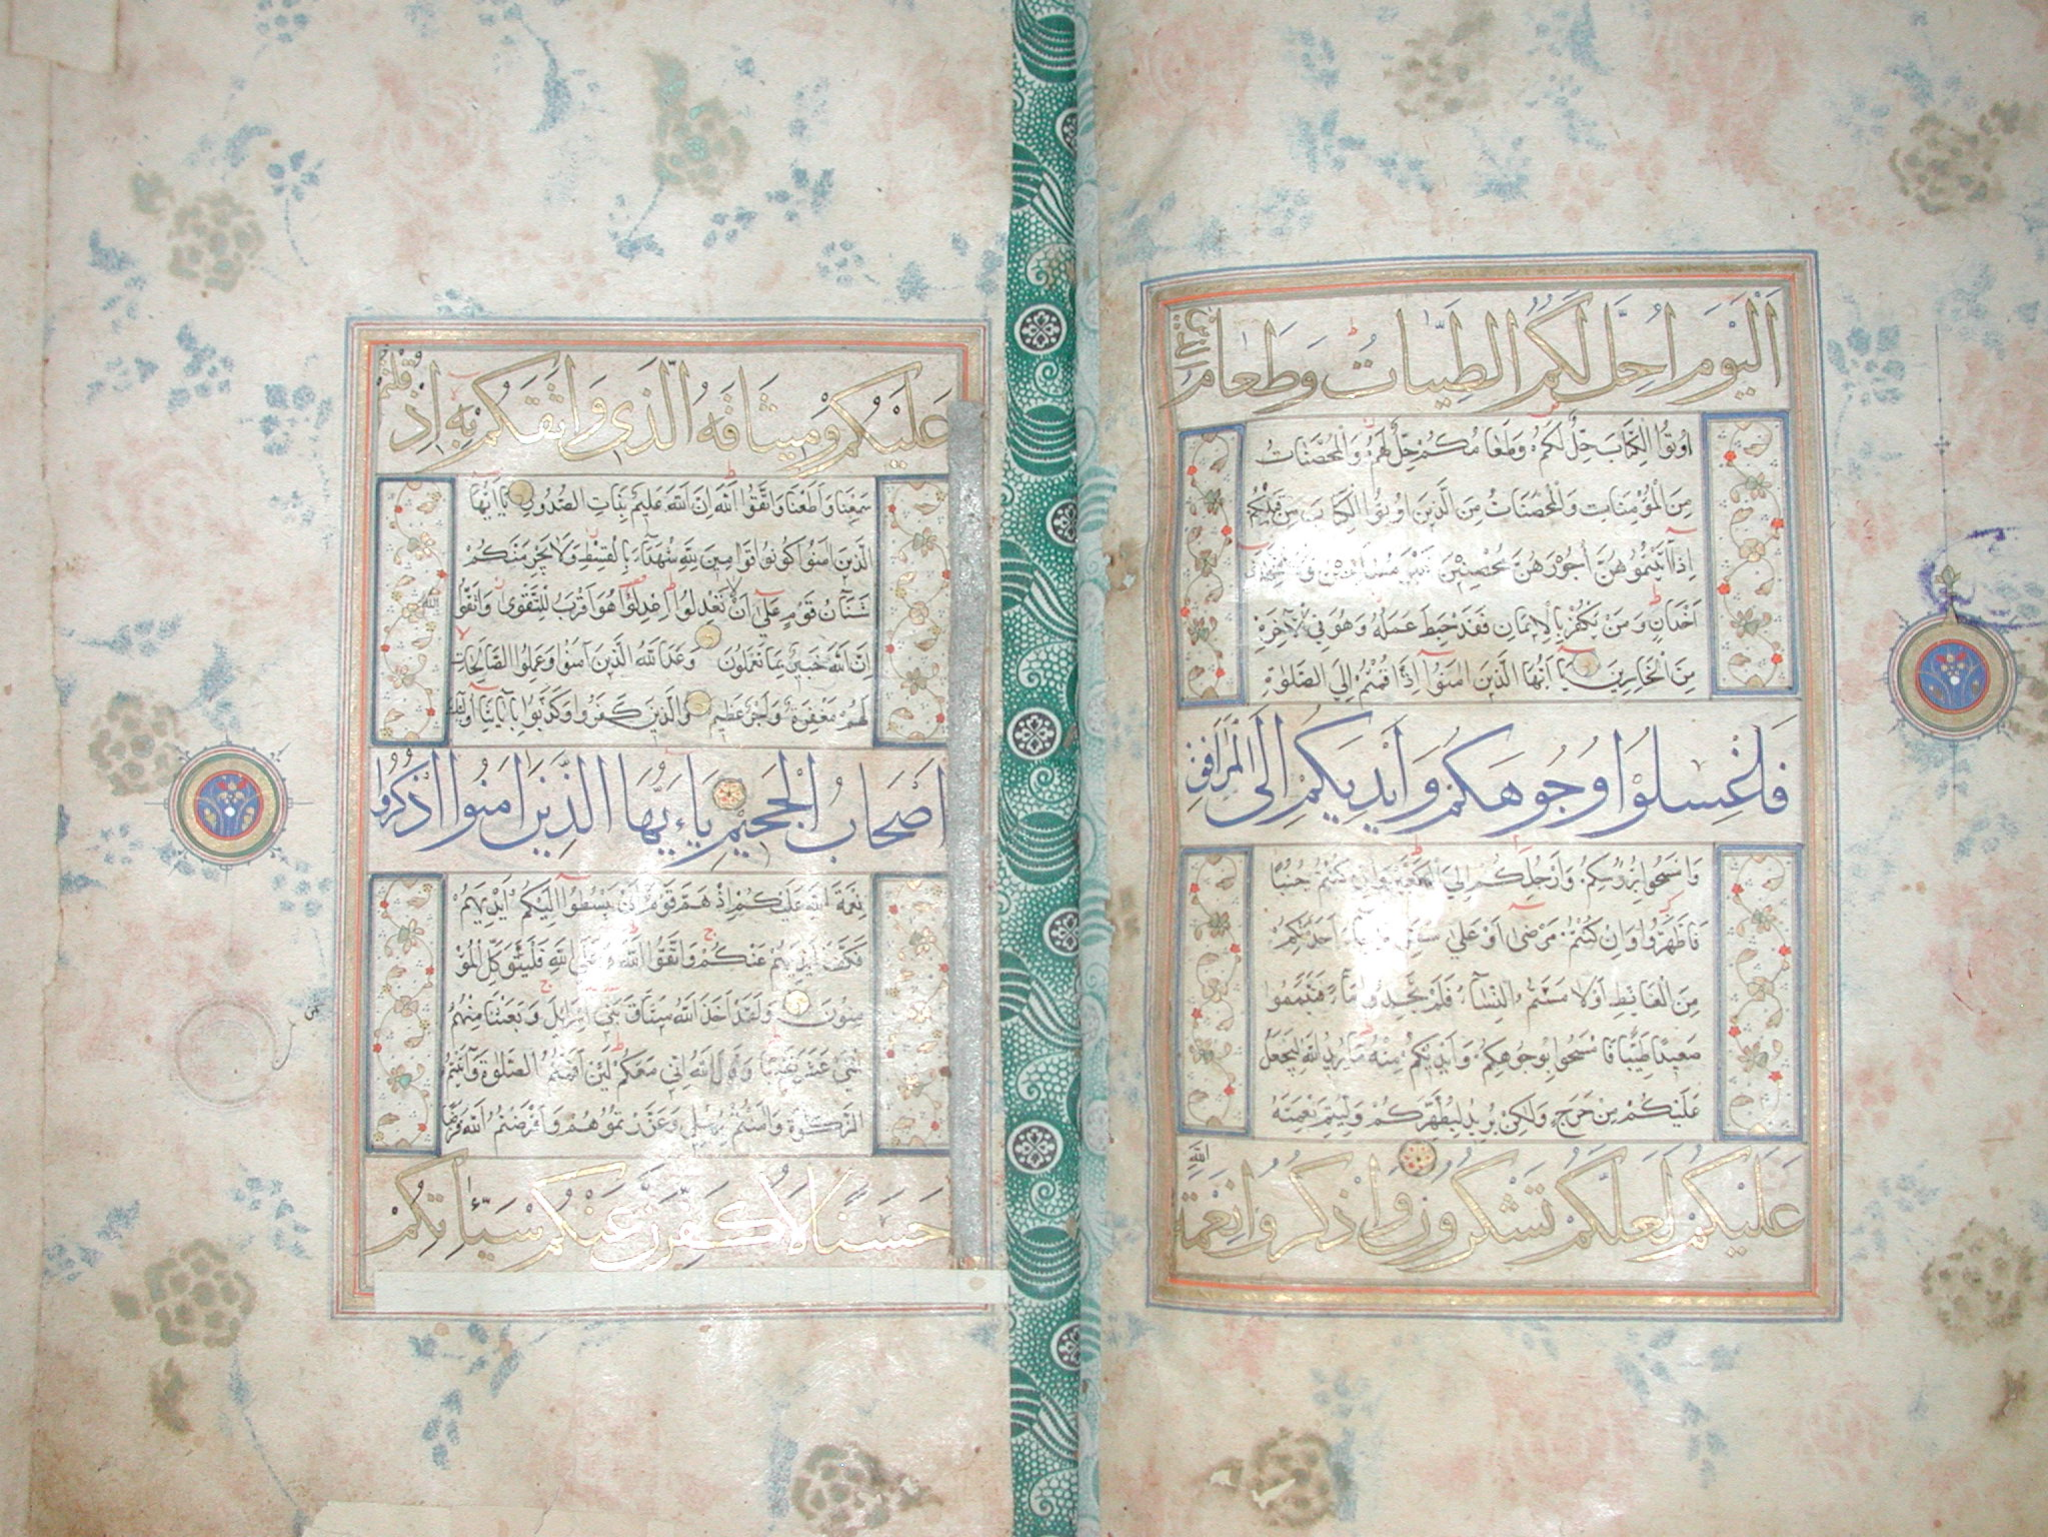 اَلْيَوْمَ اُحِلَّ لَكُمُ الطَّيِّبَاتُ وَطَعَامُ الَّذِينَ
اُوتُوا الْكِتَابَ حِلٌّ لَكُمْ وَطَعَامُكُمْ حِلٌّ لَهُمْ وَالْمُحْصَنَاتُ
مِنَ الْمُؤْمِنَاتِ وَالْمُحْصَنَاتُ مِنَ الَّذِينَ اُوتُوا الْكِتَابَ مِنْ قَبْلِكُمْ
اِذَا آتَيْتُمُوهُنَّ اُجُورَهُنَّ مُحْصِنِينَ غَيْرَ مُسَافِحِينَ وَلَا مُتَّخِذِي
اَخْدَانٍ وَمَنْ يَكْفُرْ بِالْاِيمَانِ فَقَدْ حَبِطَ عَمَلُهُ وَهُوَ فِي الْآخِرَةِ
مِنَ الْخَاسِرِينَ يَا اَيُّهَا الَّذِينَ اٰمَنُوا اِذَا قُمْتُمْ اِلَى الصَّلٰوةِ
فَاغْسِلُوا وُجُوهَكُمْ وَاَيْدِيَكُمْ اِلَى الْمَرَافِقِ
وَامْسَحُوا بِرُءُوسِكُمْ وَاَرْجُلَكُمْ اِلَى الْكَعْبَيْنِ وَاِنْ كُنْتُمْ جُنُبًا
فَاطَّهَّرُوا وَاِنْ كُنْتُمْ مَرْضٰى اَوْ عَلٰى سَفَرٍ اَوْ جَاءَ اَحَدٌ مِنْكُمْ
مِنَ الْغَائِطِ اَوْ لَامَسْتُمُ النِّسَاءَ فَلَمْ تَجِدُوا مَاءً فَتَيَمَّمُوا
صَعِيدًا طَيِّبًا فَامْسَحُوا بِوُجُوهِكُمْ وَاَيْدِيكُمْ مِنْهُ مَا يُرِيدُ اللّٰهُ لِيَجْعَلَ
عَلَيْكُمْ مِنْ حَرَجٍ وَلٰكِنْ يُرِيدُ لِيُطَهِّرَكُمْ وَلِيُتِمَّ نِعْمَتَهُ
عَلَيْكُمْ لَعَلَّكُمْ تَشْكُرُونَ وَاذْكُرُوا نِعْمَةَ اللّٰهِ
عَلَيْكُمْ وَمِيثَاقَهُ الَّذِي وَاثَقَكُمْ بِهِ اِذْ قُلْتُمْ
سَمِعْنَا وَاَطَعْنَا وَاتَّقُوا اللّٰهَ اِنَّ اللّٰهَ عَلِيمٌ بِذَاتِ الصُّدُورِ يَا اَيُّهَا
الَّذِينَ اٰمَنُوا كُونُوا قَوَّامِينَ لِلّٰهِ شُهَدَاءَ بِالْقِسْطِ وَلَا يَجْرِمَنَّكُمْ
شَنَآنُ قَوْمٍ عَلٰى اَنْ لَا تَعْدِلُوا اِعْدِلُوا هُوَ اَقْرَبُ لِلتَّقْوٰى وَاتَّقُوا اللّٰهَ
اِنَّ اللّٰهَ خَبِيرٌ بِمَا تَعْمَلُونَ وَعَدَ اللّٰهُ الَّذِينَ آمَنُوا وَعَمِلُوا الصَّالِحَاتِ
لَهُمْ مَغْفِرَةٌ وَاَجْرٌ عَظِيمٌ وَالَّذِينَ كَفَرُوا وَكَذَّبُوا بِآيَاتِنَا اُولٰئِكَ
اَصْحَابُ الْجَحِيمِ يَاءَيُّهَا الَّذِينَ اٰمَنُوا اذْكُرُوا
نِعْمَةَ اللّٰهِ عَلَيْكُمْ اِذْ هَمَّ قَوْمٌ اَنْ يَبْسُطُوا اِلَيْكُمْ اَيْدِيَهُمْ
فَكَفَّ اَيْدِيَهُمْ عَنْكُمْ وَاتَّقُوا اللّٰهَ وَعَلَى اللّٰهِ فَلْيَتَوَكَّلِ الْمُؤْ
مِنُونَ وَلَقَدْ اَخَذَ اللّٰهُ مِيثَاقَ بَنِي اِسْرَائِلَ وَبَعَثْنَا مِنْهُمُ
اثْنَيْ عَشَرَ نَقِيبًا وَقَالَ اللّٰهُ اِنِّي مَعَكُمْ لَئِنْ اَقَمْتُمُ الصَّلٰوةَ وَآتَيْتُمُ
الزَّكٰوةَ وَاٰمَنْتُمْ بِرُسُلِي وَعَزَّرْتُمُوهُمْ وَاَقْرَضْتُمُ اللّٰهَ قَرْضًا
حَسَنًا لَاُكَفِّرَنَّ عَنْكُمْ سَيِّاٰتِكُمْ